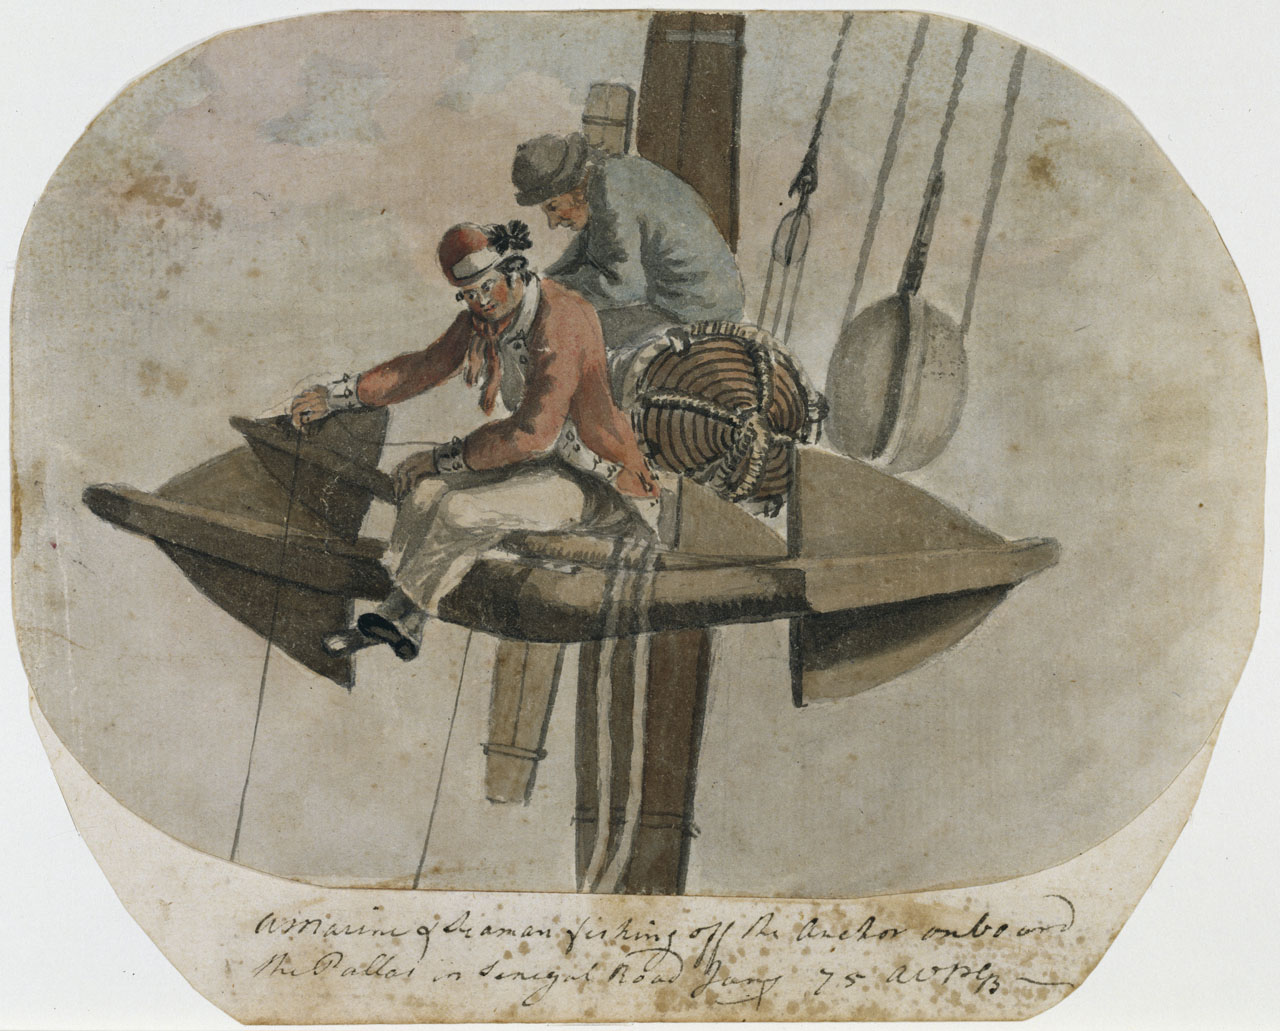 a Marine & Seaman fishing off the Anchor on board
the Pallas in Senegal Road Jany 75